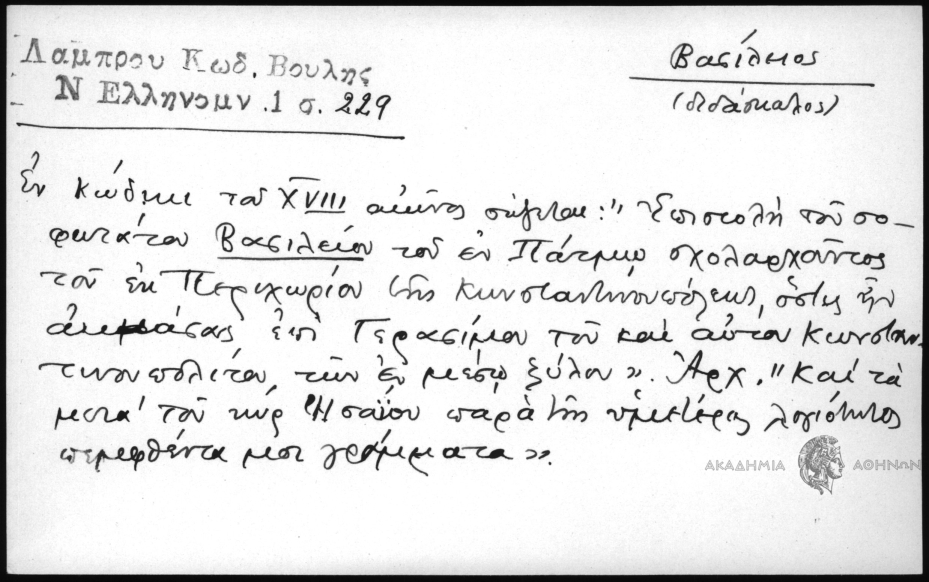 Λαμπρου Κωδ. Βουλης
Ν Ελληνομν. 1 σ. 229
Βασίλειος
(διδάσκαλος)
Ἐν κώδικι τοῦ XVIII αἰῶνος σῴζεται: "Ἐπιστολὴ τοῦ σο-
φωτάτου Βασιλείου τοῦ ἐν Πάτμῳ σχολαρχοῦντος
τοῦ ἐκ Περιχωρίου τῆς Κωνσταντινουπόλεως, ὅστις ἦν
ἀκμάσας ἐπὶ Γερασίμου τοῦ καὶ αὐτοῦ Κωνσταν-
τινουπολίτου, τῶν ἓν μέσῳ ξύλου». Ἀρχ. "Καὶ τὰ
μετὰ τοῦ κὺρ Ἠσαΐου παρὰ τῆς ὑμετέρας λογιότητος
πεμφθέντα μοι γράμματα».
ΑΚΑΔΗΜΙΑ ΑΘΗΝΩΝ